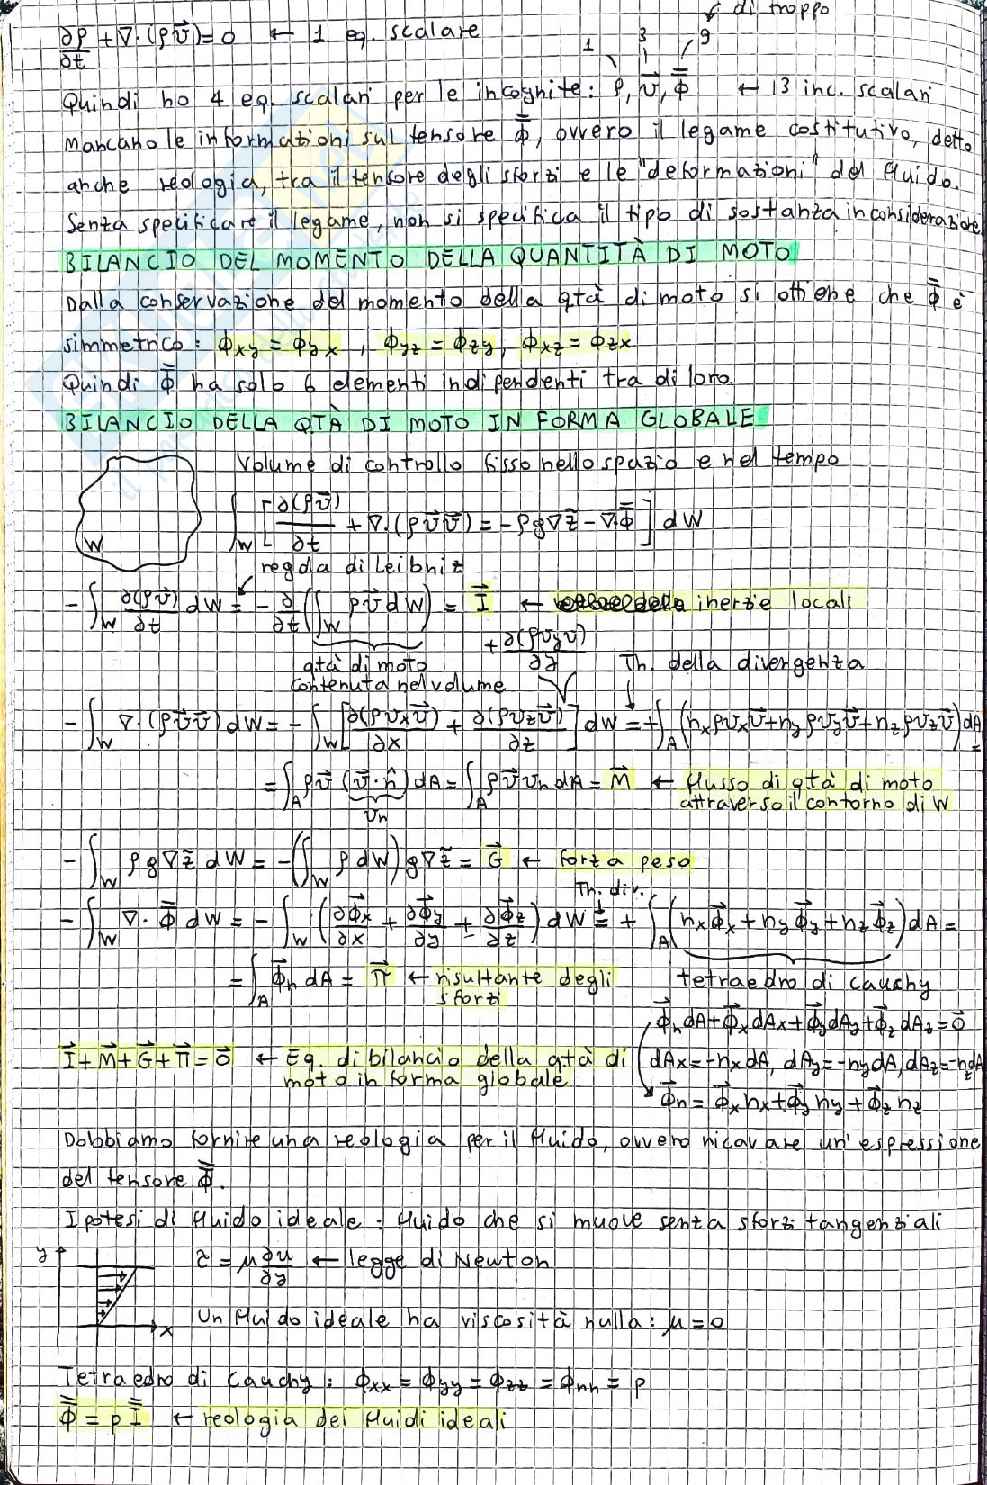 di troppo
∂ρ/∂t + ∇·(ρv⃗) = 0 ← 1 eq. scalare
1 3 9
Quindi ho 4 eq. scalari per le incognite: ρ, v⃗, Φ̿ ← 13 inc. scalari
Mancano le informazioni sul tensore Φ̿, ovvero il legame costitutivo, detto
anche reologia, tra il tensore degli sforzi e le "deformazioni" del fluido.
Senza specificare il legame, non si specifica il tipo di sostanza in considerazione
BILANCIO DEL MOMENTO DELLA QUANTITÀ DI MOTO
Dalla conservazione del momento della qtà di moto si ottiene che Φ̿ è
simmetrico: Φxy = Φyx , Φyz = Φzy, Φxz = Φzx
Quindi Φ̿ ha solo 6 elementi indipendenti tra di loro
BILANCIO DELLA QTÀ DI MOTO IN FORMA GLOBALE
Volume di controllo fisso nello spazio e nel tempo
W ∫_W [∂(ρv⃗)/∂t + ∇·(ρv⃗v⃗) = -ρg∇z - ∇·Φ̿] dW
regola di Leibniz
-∫_W ∂(ρv⃗)/∂t dW = -∂/∂t (∫_W ρv⃗ dW) = I⃗ ← inerzie locali
qtà di moto contenuta nel volume
+ ∂(ρvyv⃗)/∂y Th. della divergenza
-∫_W ∇·(ρv⃗v⃗) dW = -∫_W [∂(ρvxv⃗)/∂x + ∂(ρvzv⃗)/∂z] dW = +∫_A (nxρvxv⃗ + nyρvyv⃗ + nzρvzv⃗) dA =
= ∫_A ρv⃗ (v⃗·n̂) dA = ∫_A ρv⃗ vn dA = M⃗ ← flusso di qtà di moto
vn attraverso il contorno di W
-∫_W ρg∇z dW = -(∫_W ρ dW) g∇z = G⃗ ← forza peso
Th. div.
-∫_W ∇·Φ̿ dW = -∫_W (∂Φ⃗x/∂x + ∂Φ⃗y/∂y + ∂Φ⃗z/∂z) dW = +∫_A (nxΦ⃗x + nyΦ⃗y + nzΦ⃗z) dA =
= ∫_A Φ⃗n dA = Π⃗ ← risultante degli sforzi
tetraedro di cauchy
Φ⃗n dA + Φ⃗x dAx + Φ⃗y dAy + Φ⃗z dAz = 0⃗
I⃗ + M⃗ + G⃗ + Π⃗ = 0⃗ ← Eq. di bilancio della qtà di moto in forma globale
dAx = -nx dA, dAy = -ny dA, dAz = -nz dA
Φ⃗n = Φ⃗x nx + Φ⃗y ny + Φ⃗z nz
Dobbiamo fornire una reologia per il fluido, ovvero ricavare un'espressione
del tensore Φ̿.
Ipotesi di fluido ideale - fluido che si muove senza sforzi tangenziali
y τ = μ ∂u/∂y ← legge di Newton
x Un fluido ideale ha viscosità nulla: μ = 0
Tetraedro di Cauchy: Φxx = Φyy = Φzz = Φnn = p
Φ̿ = p I̿ ← reologia dei fluidi ideali